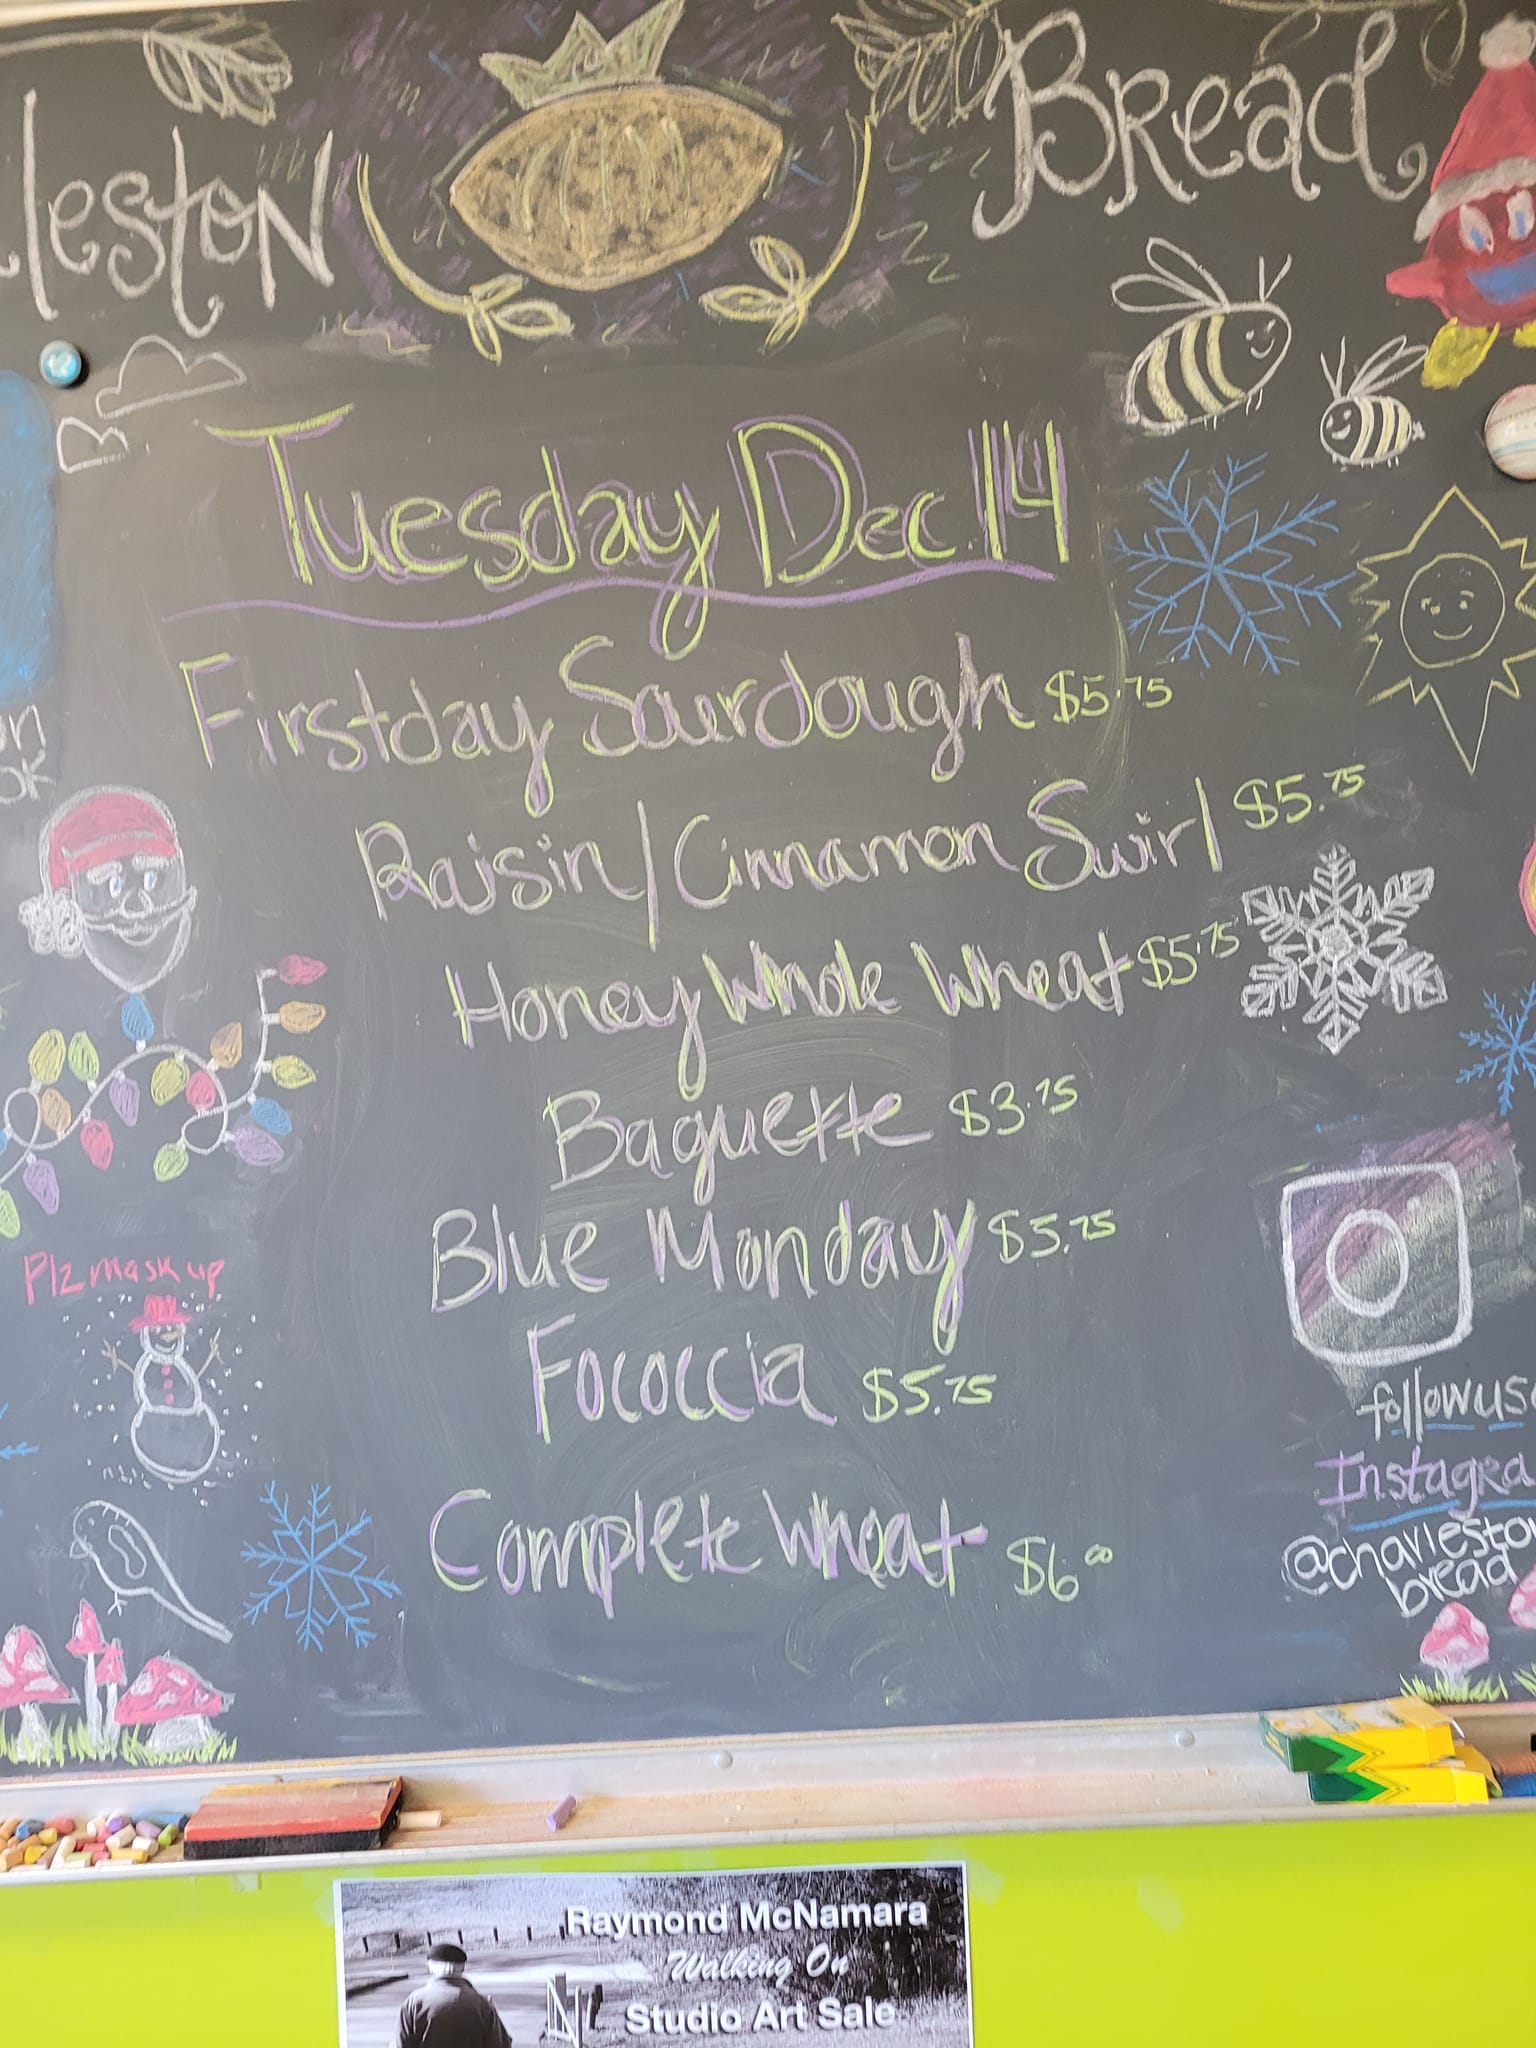 leston Bread
Tuesday Dec 14
Firstday Sourdough $5.75
Raisin/Cinnamon Swirl $5.75
Honey Whole Wheat $5.75
Baguette $3.75
Blue Monday $5.75
Fococcia $5.75
Complete Wheat $6.00
on
ok
Plz mask up
follow us
Instagra
@charlesto
bread
Raymond McNamara
Walking On
Studio Art Sale